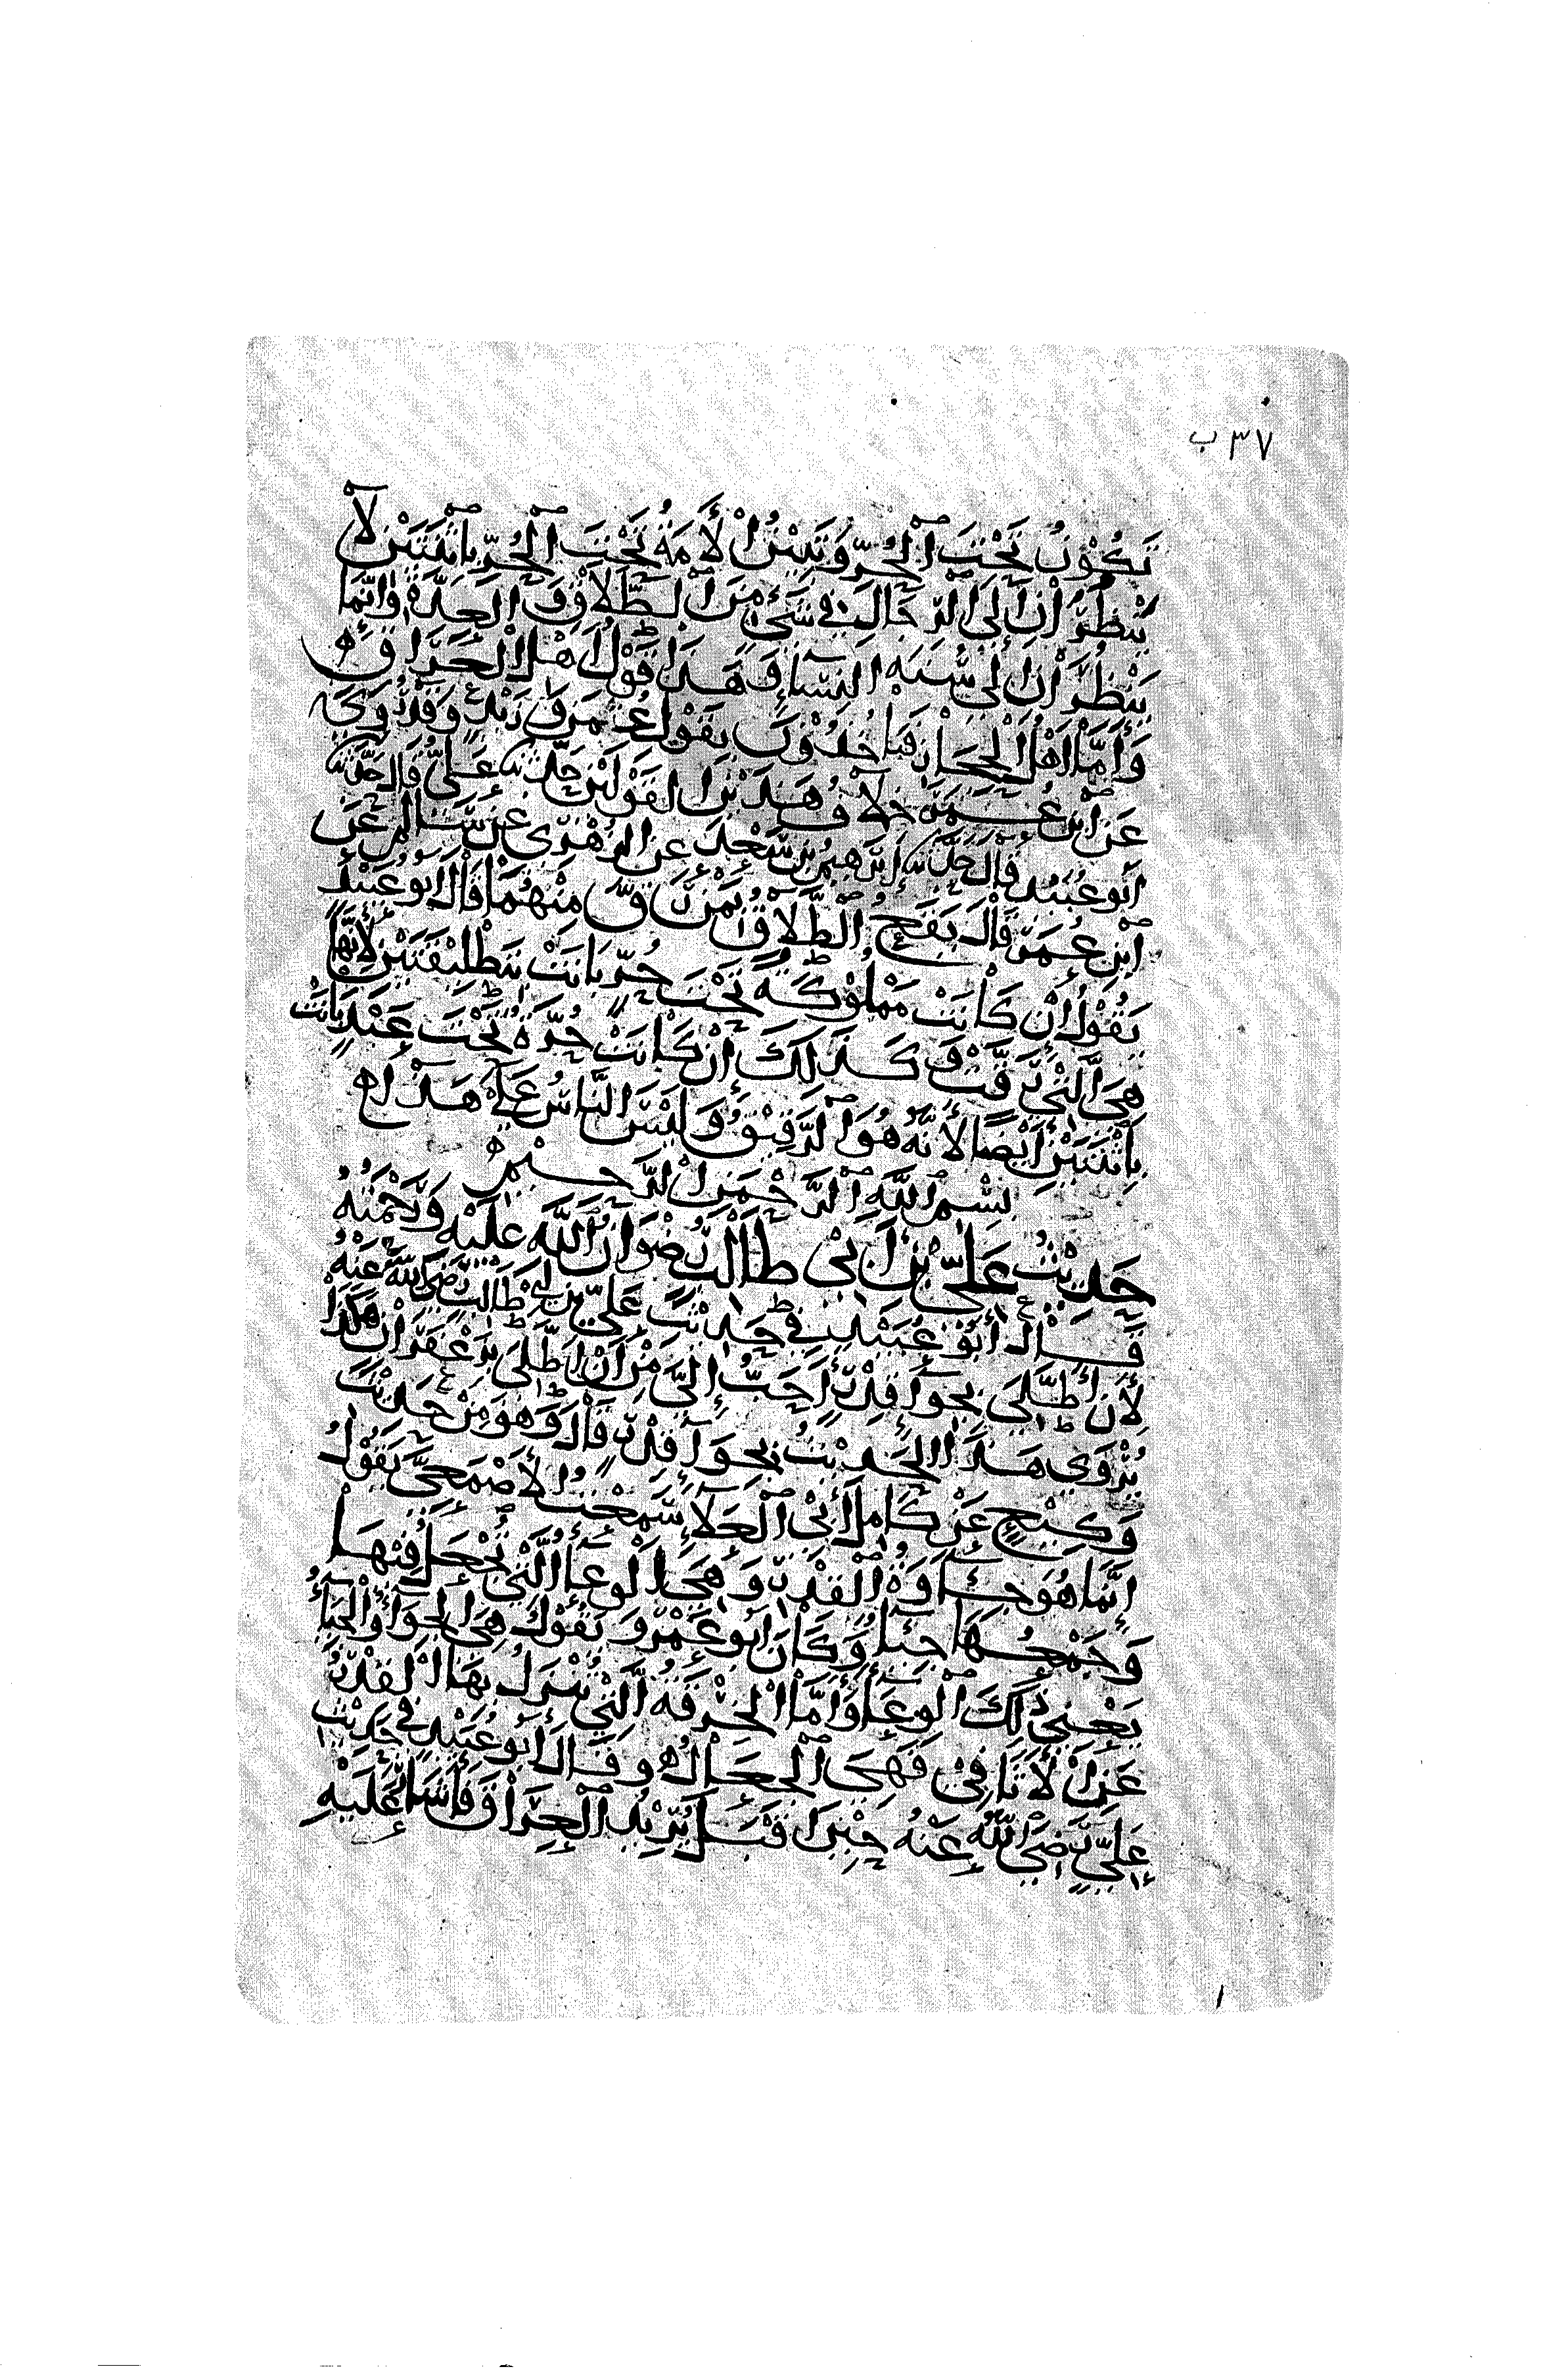 ٣٧ ب
تَكُوْنُ تَحْتَ الْحُرِّ وَتَبِيْنُ الْأَمَةُ تَحْتَ الْحُرِّ بِاثْنَتَيْنِ لَا
يَنْظُرَانِ إِلَى الرِّجَالِ فِي شَيْءٍ مِنَ الطَّلَاقِ وَ العِدَّةِ وَإِنَّمَا
يَنْظُرَانِ إِلَى سُنَّةِ النِّسَاءِ وَهَذَا قَوْلُ أَهْلِ الْعِرَاقِ ه
وَأَمَّا أَهْلُ الْحِجَازِ فَيَأْخُذُوْنَ بِقَوْلِ عُثْمَنَ وَ زَيْدٍ وَقَدْ رُوِيَ
عَنِ ابْنِ عُمَرَ خِلَافُ هَذَيْنِ القَوْلَيْنِ حدثنا عَلِيٌّ قَالَ حدثنا
أَبُو عُبَيْدٍ قَالَ حدثنا إِبْرَهِيمُ بْنُ سَعْدٍ عَنِ الزُّهْرِيِّ عَنْ سَالِمٍ عَنِ
ابْنِ عُمَرَ قَالَ يَقَعُ الطَّلَاقُ بِمَنْ رَقَّ مِنْهُمَا قَالَ أَبُو عُبَيْدٍ
يَقُوْلُ إِنْ كَانَتْ مَمْلُوْكَةً تَحْتَ حُرٍّ بَانَتْ بِتَطْلِيْقَتَيْنِ لِأَنَّهَا
هِيَ الَّتِيْ رَقَّتْ وَكَذَلِكَ إِنْ كَانَتْ حُرَّةً تَحْتَ عَبْدٍ بَانَتْ
بِاثْنَتَيْنِ أَيْضًا لِأَنَّهُ هُوَ الرَّقِيْقُ وَلَيْسَ النَّاسُ عَلَى هَذَا ه
بِسْمِ اللَّهِ الرَّحْمَنِ الرَّحِيْمِ ه
حَدِيْثُ عَلِيِّ بْنِ أَبِيْ طَالِبٍ رِضْوَانُ اللَّهِ عَلَيْهِ وَرَحْمَتُهُ
قَالَ أَبُوْ عُبَيْدٍ فِي حَدِيْثِ عَلِيِّ بْنِ أَبِي طَالِبٍ رَضِيَ اللَّهُ عَنْهُ
لَأَنْ أَطَّلِيَ بِجِوَاءِ قِدْرٍ أَحَبُّ إِلَيَّ مِنْ أَنْ أَطَّلِيَ بِزَعْفَرَانٍ هَكَذَا
يُرْوَى هَذَا الْحَدِيْثُ بِجِوَاءِ قِدْرٍ قَالَ وَهُوَ مِنْ حَدِيْثِ
وَكِيْعٍ عَنْ كَامِلٍ أَبِيْ الْعَلَاءِ سَمِعْتُ الْأَصْمَعِيَّ يَقُوْلُ
إِنَّمَا هُوَ جِئَاوَةُ الْقِدْرِ وَهِيَ الْوِعَاءُ الَّتِيْ تُجْعَلُ فِيْهَا
وَجَمْعُهَا جِئَاءٌ وَكَانَ أَبُو عَمْرٍو يَقُوْلُ هِيَ الْجِوَاءُ وَالْجِيَاءُ
يَعْنِي ذَلِكَ الْوِعَاءَ وَأَمَّا الْخِرْقَةُ الَّتِيْ يُنْزَلُ بِهَا الْقِدْرُ
عَنِ الْأَثَافِيْ فَهِيَ الْجِعَالُ ه وَقَالَ أَبُو عُبَيْدٍ فِي حَدِيْثِ
عَلِيٍّ رَضِيَ اللَّهُ عَنْهُ حِيْنَ أَقْبَلَ يُرِيْدُ الْعِرَاقَ فَأَشَارَ عَلَيْهِ